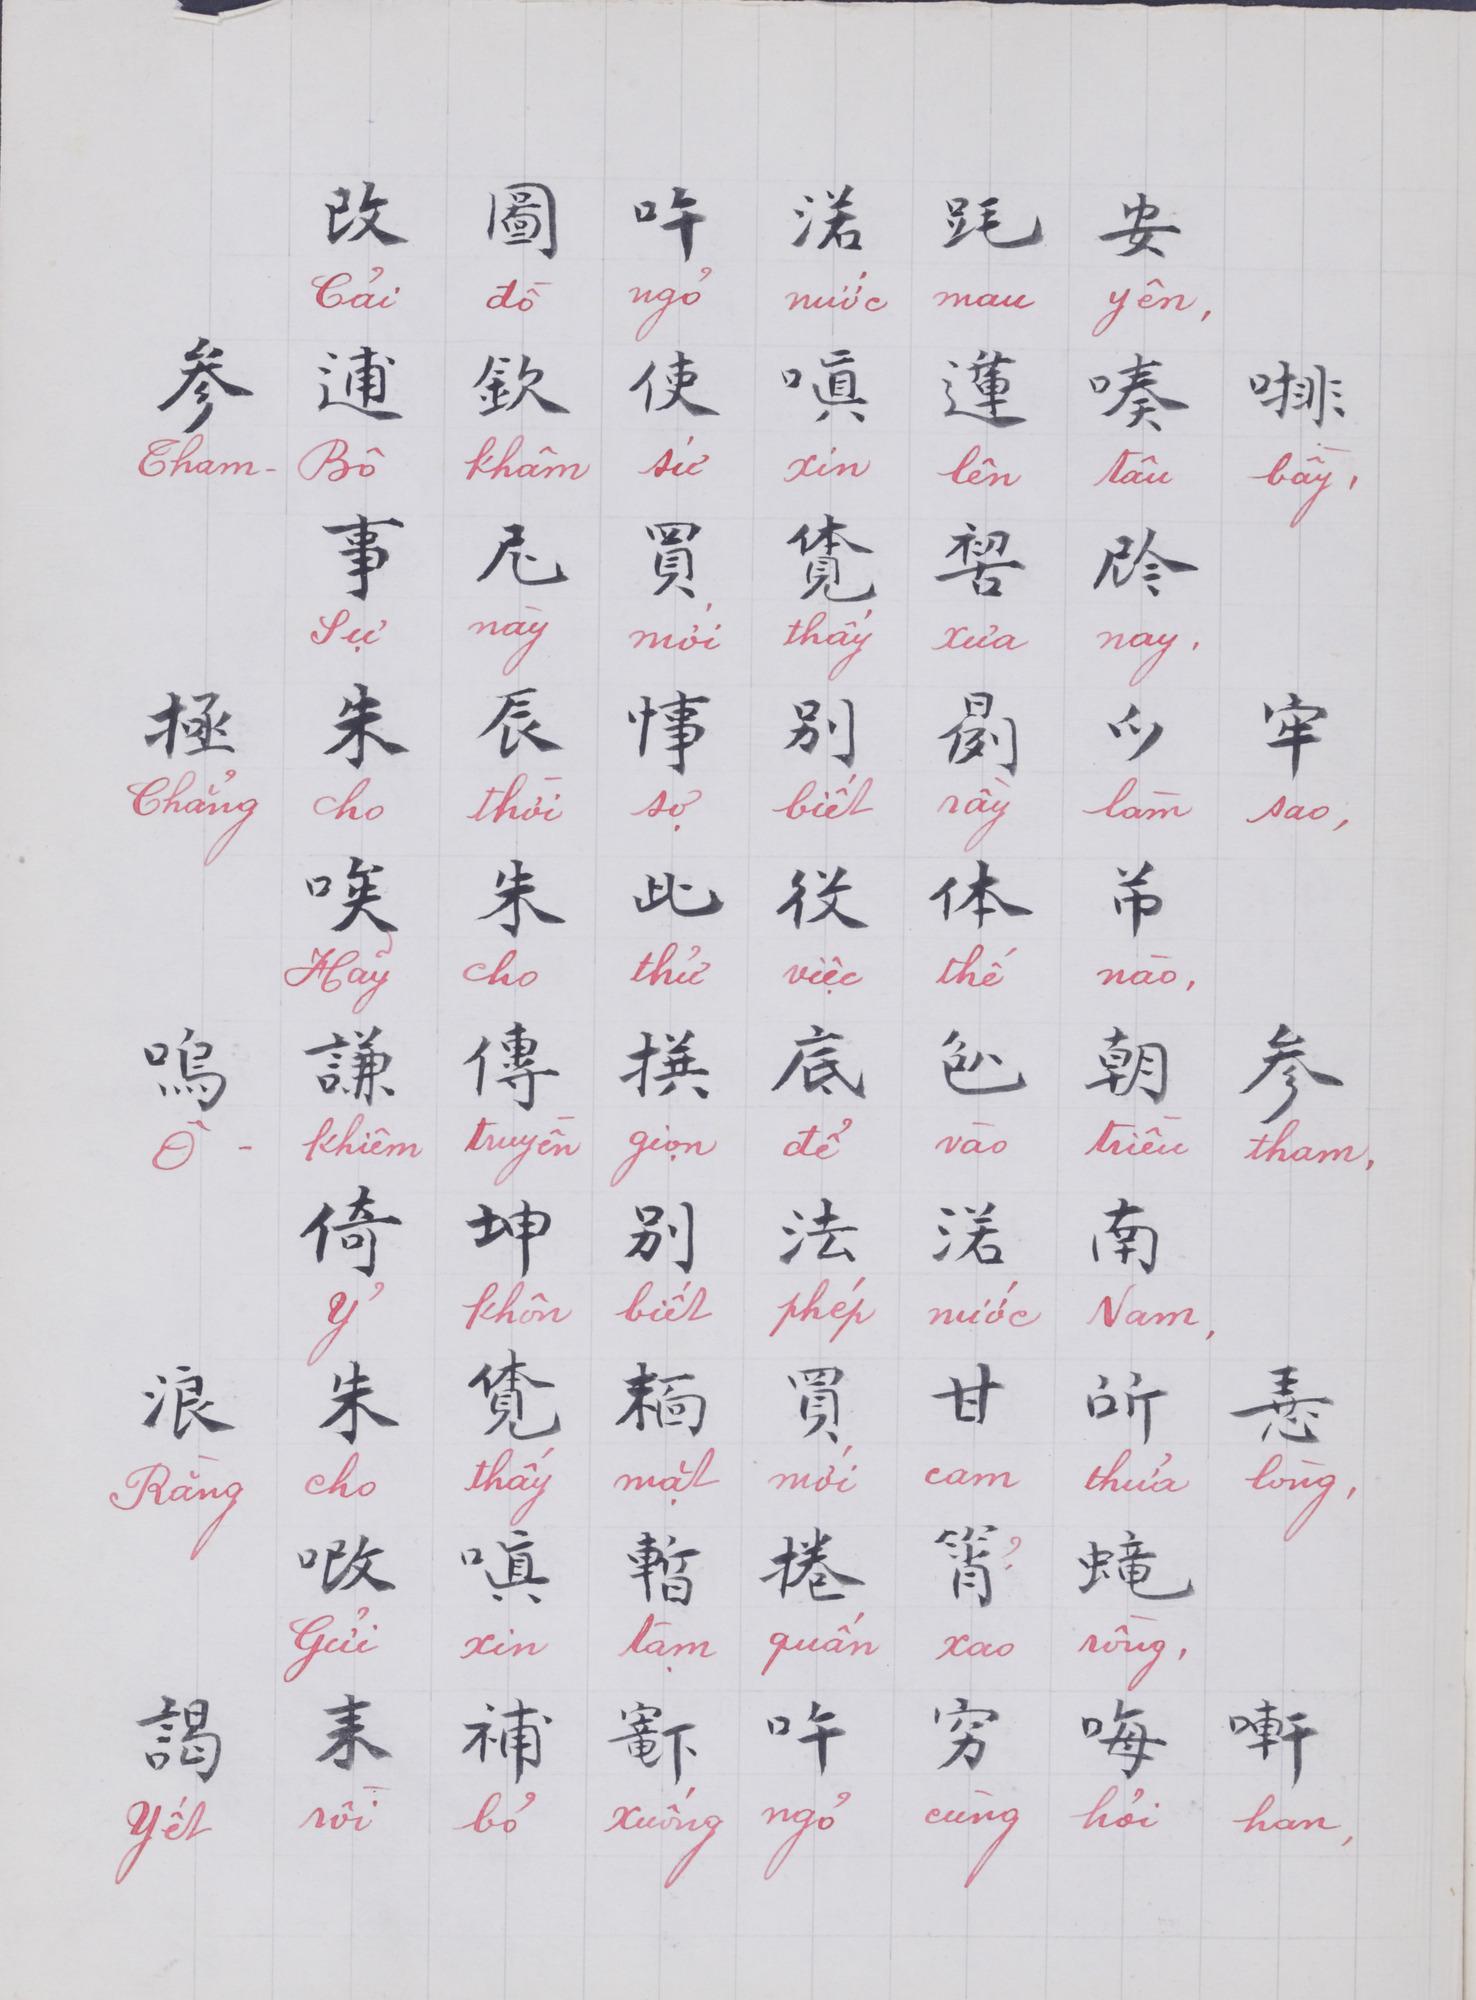 改圖吘渃𣭻安
Cải đồ ngỏ nước mau yên,
参逋欽使嗔蓮嗪𠷤
Tham-Bô khâm sứ xin lên tâu bầy,
事尼買覽𠸗𠉞
Sự này mới thấy xưa nay,
極朱辰悖別𣇊𫜵牢
Chẳng cho thời sợ biết rầy làm sao,
唉朱此役体芇
Hãy cho thử việc thế nào,
嗚謙傳撰底𠓨朝参
Ồ-khiêm truyền giọn để vào triều tham,
倚坤別法渃南
Ỷ khôn biết phép nước Nam,
浪朱覽𩈘買甘所𢚸
Rằng cho thấy mặt mới cam thửa lòng,
𠳚嗔暫捲筲?𧏵
Gửi xin tạm quấn xao rồng,
謁耒補𨑜吘穷晦嘝
Yết rồi bỏ xuống ngỏ cùng hỏi han,